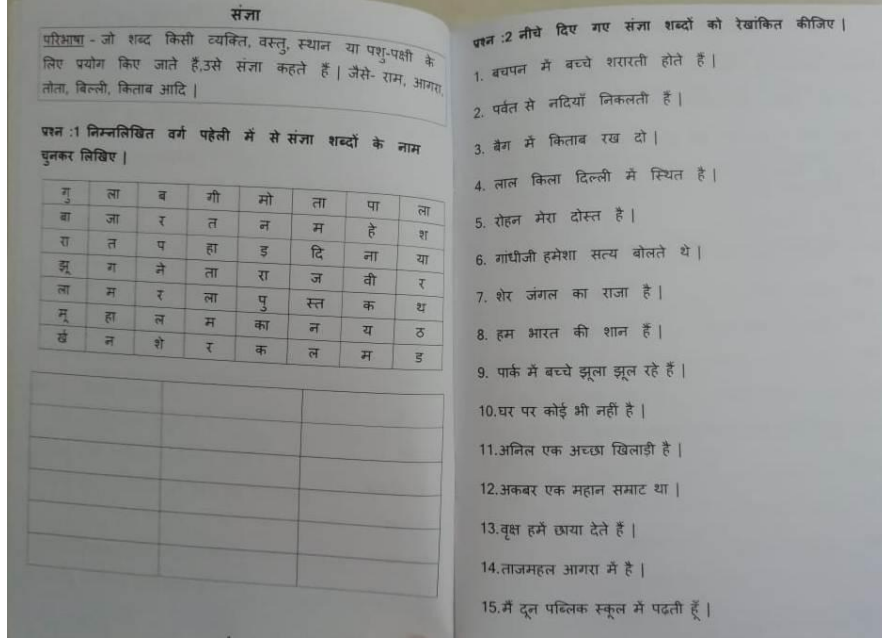 संज्ञा
परिभाषा - जो शब्द किसी व्यक्ति, वस्तु, स्थान या पशु-पक्षी के
लिए प्रयोग किए जाते हैं,उसे संज्ञा कहते हैं | जैसे- राम, आगरा,
तोता, बिल्ली, किताब आदि |
प्रश्न :1 निम्नलिखित वर्ग पहेली में से संज्ञा शब्दों के नाम
चुनकर लिखिए |
गु ला ब गी मो ता पा ला
बा जा र त न म हे श
रा त प हा ड दि ना या
झू ग ने ता रा ज वी र
ला म र ला पु स्त क थ
मू हा ल म का न य ठ
खे न शे र क ल म ड
प्रश्न :2 नीचे दिए गए संज्ञा शब्दों को रेखांकित कीजिए |
1. बचपन में बच्चे शरारती होते हैं |
2. पर्वत से नदियाँ निकलती हैं |
3. बैग में किताब रख दो |
4. लाल किला दिल्ली में स्थित है |
5. रोहन मेरा दोस्त है |
6. गांधीजी हमेशा सत्य बोलते थे |
7. शेर जंगल का राजा है |
8. हम भारत की शान हैं |
9. पार्क में बच्चे झूला झूल रहे हैं |
10.घर पर कोई भी नहीं है |
11.अनिल एक अच्छा खिलाड़ी है |
12.अकबर एक महान सम्राट था |
13.वृक्ष हमें छाया देते हैं |
14.ताजमहल आगरा में है |
15.मैं दून पब्लिक स्कूल में पढ़ती हूँ |